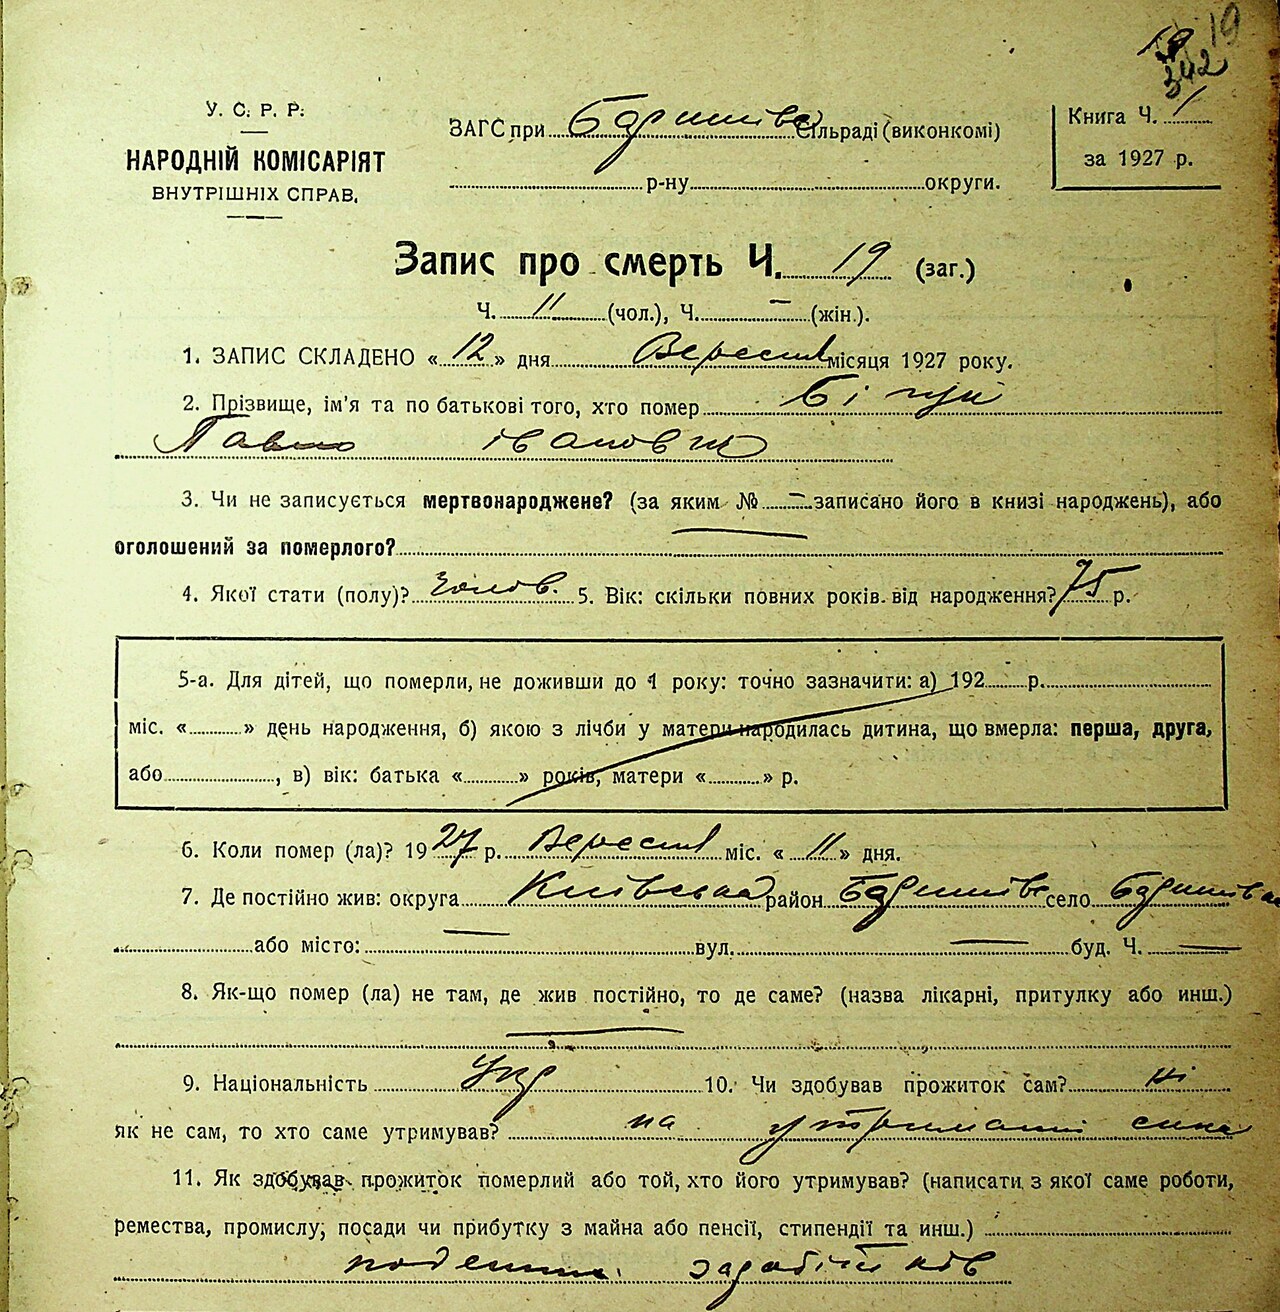 19
342
У. С. Р. Р.
НАРОДНІЙ КОМІСАРІЯТ
ВНУТРІШНІХ СПРАВ.
ЗАГС при Сільраді (виконкомі)
р-ну округи.
Книга Ч. 1
за 1927 р.
Запис про смерть Ч. 19 (заг.)
Ч. 11 (чол.), Ч. – (жін.).
1. ЗАПИС СКЛАДЕНО « 12 » дня Вересня місяця 1927 року.
2. Прізвище, ім'я та по батькові того, хто помер
Павло Іванович
3. Чи не записується мертвонароджене? (за яким № – записано його в книзі народжень), або
оголошений за померлого?
4. Якої стати (полу)? Чолов. 5. Вік: скільки повних років від народження? 75 р.
5-а. Для дітей, що померли, не доживши до 1 року: точно зазначити: а) 192 р.
міс. « » день народження, б) якою з лічби у матери народилась дитина, що вмерла: перша, друга,
або , в) вік: батька « » років, матери « » р.
6. Коли помер (ла)? 1927 р. Вересня міс. « 11 » дня.
7. Де постійно жив: округа Київська район село
або місто: — вул. — буд. Ч. —
8. Як-що помер (ла) не там, де жив постійно, то де саме? (назва лікарні, притулку або инш.)
9. Національність Укр 10. Чи здобував прожиток сам? ні
як не сам, то хто саме утримував? на утриманні сина
11. Як здобував прожиток померлий або той, хто його утримував? (написати з якої саме роботи,
ремества, промислу, посади чи прибутку з майна або пенсії, стипендії та инш.)
поденних заробітків